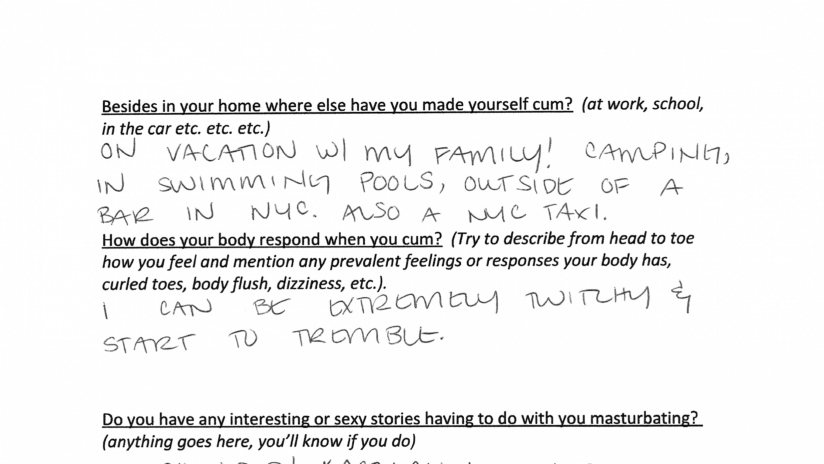 Besides in your home where else have you made yourself cum? (at work, school,
in the car etc. etc. etc.)
ON VACATION W/ MY FAMILY! CAMPING,
IN SWIMMING POOLS, OUTSIDE OF A
BAR IN NYC. ALSO A NYC TAXI.
How does your body respond when you cum? (Try to describe from head to toe
how you feel and mention any prevalent feelings or responses your body has,
curled toes, body flush, dizziness, etc.).
I CAN BE EXTREMELY TWITCHY &
START TO TREMBLE.
Do you have any interesting or sexy stories having to do with you masturbating?
(anything goes here, you'll know if you do)